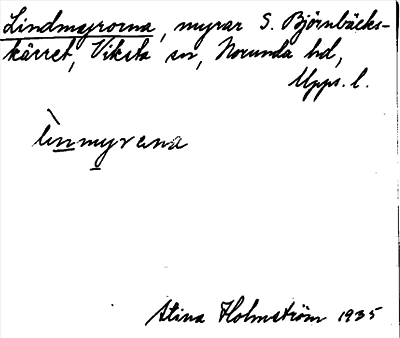 Lindmyrorna, myrar S. Björnbäcks-
kärret, Viksta sn, Norunda hd,
Upps. l.
lìnmyrana
Stina Holmström 1935